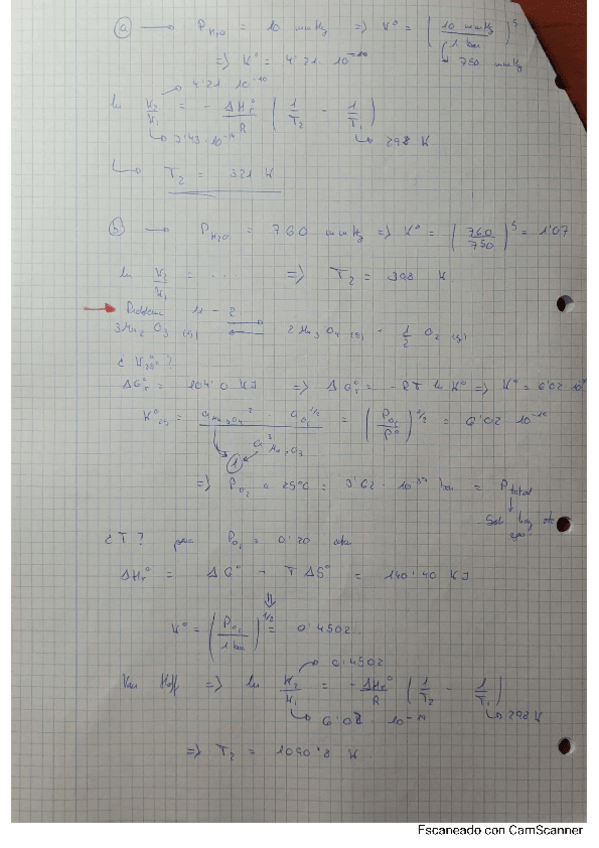 a → P H2O = 10 mmHg ⇒ K° = (10 mmHg / 1 bar)^5
↳ 750 mmHg
⇒ K° = 4'21 · 10^-10
4'21 · 10^-10
ln K2/K1 = - ΔHr°/R (1/T2 - 1/T1)
↳ 298 K
↳ T2 = 321 K
b → P H2O = 760 mmHg ⇒ K° = (760/750)^5 = 1'07
ln K2/K1 = ... ⇒ T2 = 398 K.
Problema 4-2
3Mn2O3 (s) ⇌ 2Mn3O4 (s) + 1/2 O2 (g)
¿ K° ?
ΔGr° = 104'0 KJ ⇒ ΔGr° = -RT ln K° ⇒ K° = 6'02 10
K° = a Mn3O4^2 · a O2^1/2 / a^3 Mn2O3 = (P O2 / P°)^1/2 = 6'02 · 10
1
⇒ P O2 a 25°C = 3'62 · 10 bar = P total
Solo hay
¿T? para P O2 = 0'20 atm
ΔHr° = ΔG° - TΔS° = 140'40 KJ
K° = (P O2 / 1 bar)^1/2 = 0'4502
0'4502
Van Hoff ⇒ ln K2/K1 = - ΔHr°/R (1/T2 - 1/T1)
↳ 298 K
⇒ T2 = 1090'8 K.
Escaneado con CamScanner